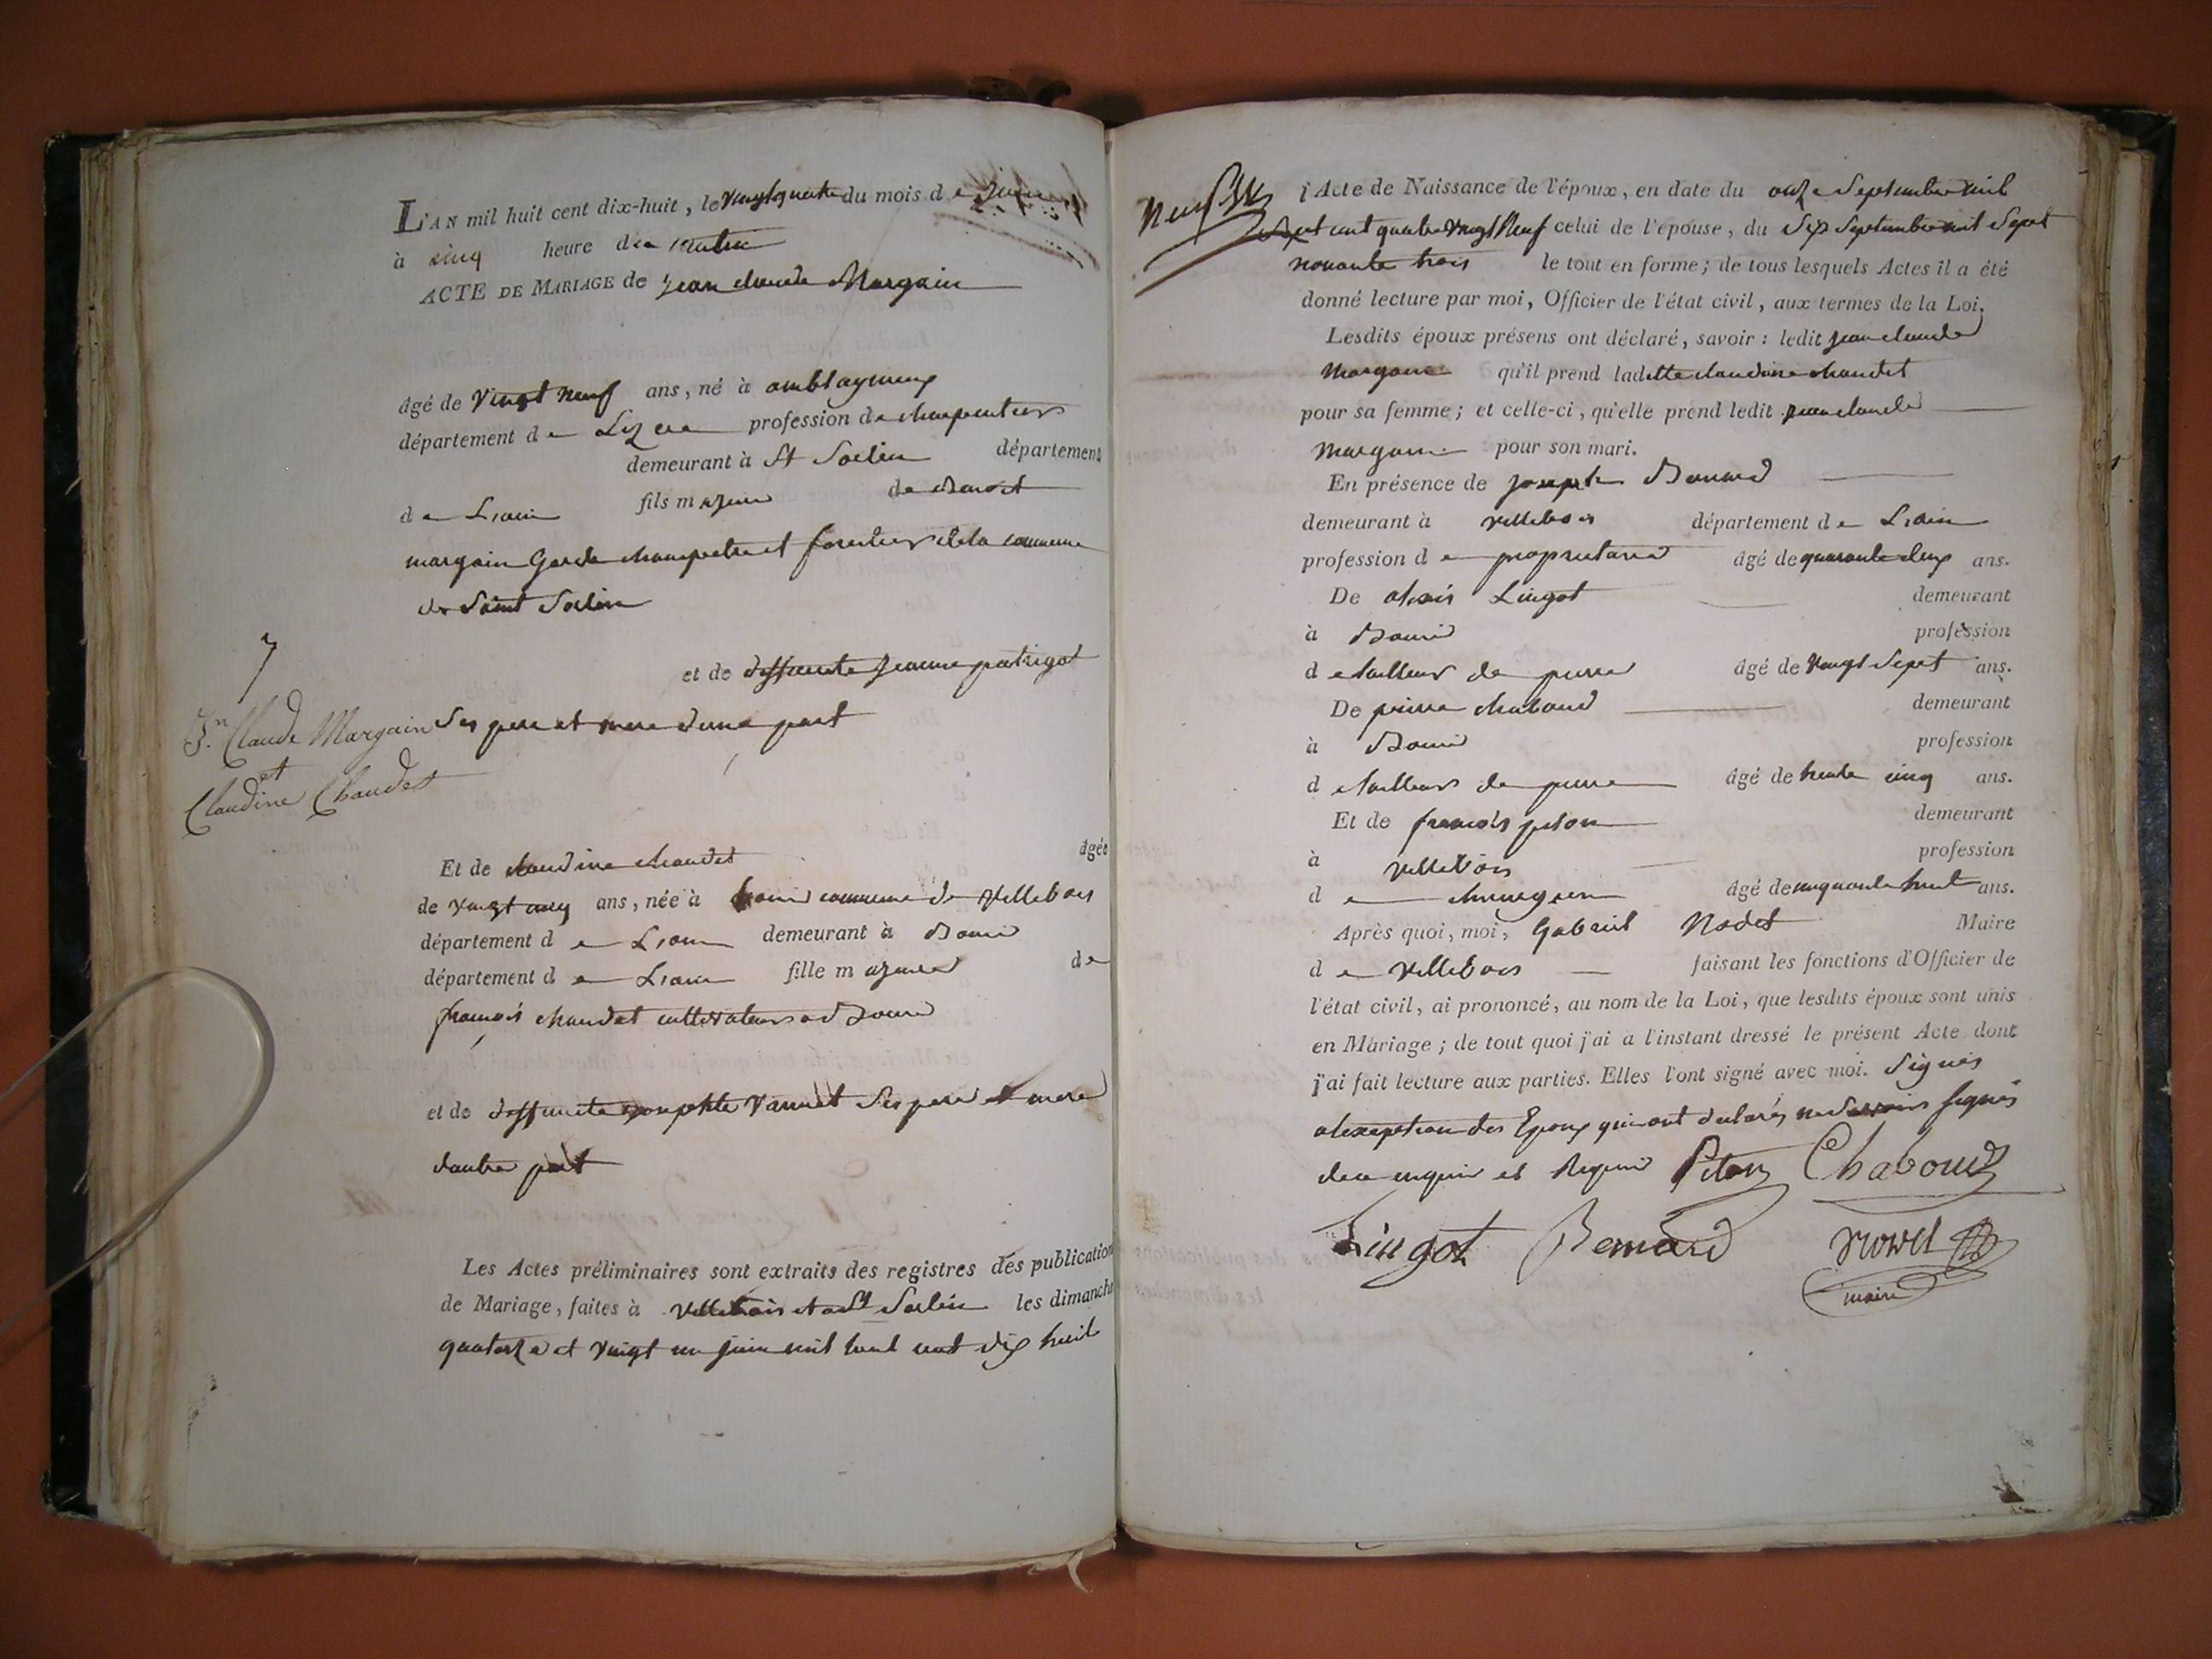 L'AN mil huit cent dix-huit, le vingt quatre du mois de juin
à cinq heure du matin
ACTE DE MARIAGE de jean claude Margain
âgé de vingt neuf ans, né à amblagnieux
département de Lizere profession de charpentier
demeurant à St Sorlin département
de L'ain fils majeur de Benoit
margain Garde champetre et forestier de la commune
de Saint Sorlin
et de deffuncte jeanne
7
Jn. Claude Margain
et
Claudine Chaudet
Ses pere et mere dune part
Et de claudine chaudet âgée
de vingt cinq ans, née à bouis commune de Villebois
département de L'ain demeurant à Bouis
département de L'ain fille majeure de
françois chaudet cultivateur a Bouis
et de deffuncte josephte Vannet Ses pere et mere
dautre part
Les Actes préliminaires sont extraits des registres des publication
de Mariage, faites à villebois et a St Sorlin les dimanche
quatorze et vingt un juin mil huit cent dix huit
l'Acte de Naissance de l'époux, en date du onze Septembre mil
Sept cent quatre vingt Neuf celui de l'épouse, du Six Septembre mil Sept
nonante trois le tout en forme; de tous lesquels Actes il a été
donné lecture par moi, Officier de l'état civil, aux termes de la Loi.
Lesdits époux présens ont déclaré, savoir: ledit jean claude
Margain qu'il prend ladette claudine chaudet
pour sa femme; et celle-ci, qu'elle prend ledit jean claude
margain pour son mari.
En présence de joseph Bernard
demeurant à villebois département de L'ain
profession de proprietaire âgé de quarante deux ans.
De alexis Lingot demeurant
à Bouis profession
de tailleur de pierre âgé de vingt Sept ans.
De pierre chaboud demeurant
à Bouis profession
de tailleur de pierre âgé de trente cinq ans.
Et de françois piton demeurant
à villebois profession
de chirurgien âgé de cinquante huit ans.
Après quoi, moi, Gabriel Nodet Maire
de villebois faisant les fonctions d'Officier de
l'état civil, ai prononcé, au nom de la Loi, que lesdits époux sont unis
en Mariage; de tout quoi j'ai a l'instant dressé le présent Acte dont
j'ai fait lecture aux parties. Elles l'ont signé avec moi. Signés
alexeption des Epoux qui ont declarés ne Savoir signés
de ce enquis et Requis Piton Chaboud
Lingot Bernard
maire